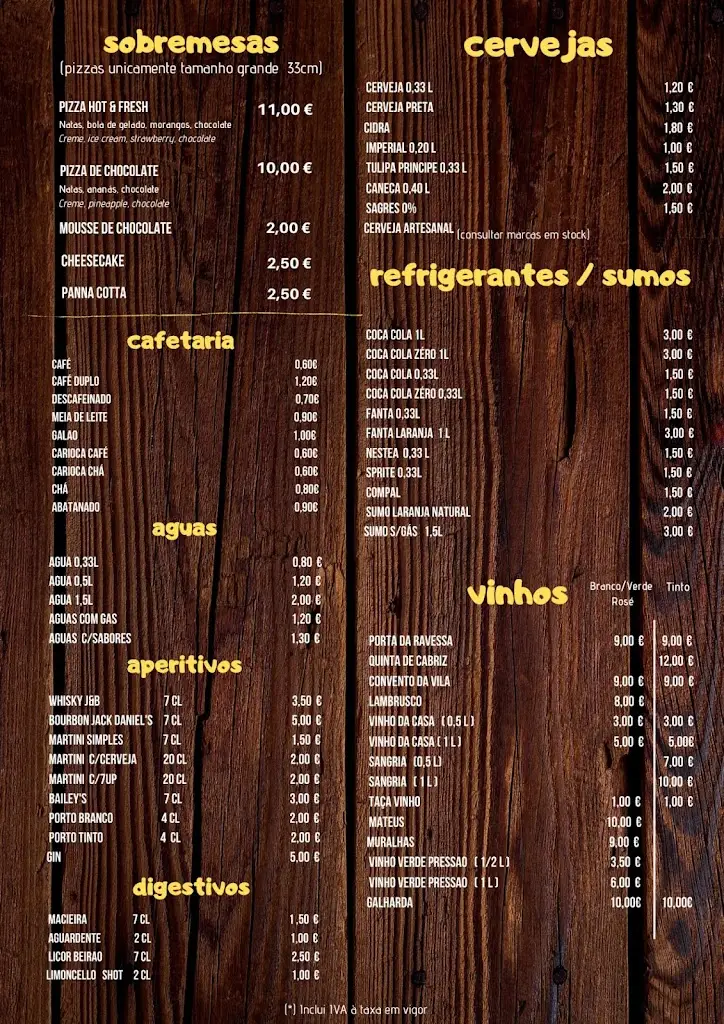 sobremesas
(pizzas unicamente tamanho grande 33cm)
PIZZA HOT & FRESH 11,00 €
Natas, bola de gelado, morangos, chocolate
Creme, ice cream, strawberry, chocolate
PIZZA DE CHOCOLATE 10,00 €
Natas, ananás, chocolate
Creme, pineapple, chocolate
MOUSSE DE CHOCOLATE 2,00 €
CHEESECAKE 2,50 €
PANNA COTTA 2,50 €
cafetaria
CAFÉ 0,60€
CAFÉ DUPLO 1,20€
DESCAFEINADO 0,70€
MEIA DE LEITE 0,90€
GALAO 1,00€
CARIOCA CAFÉ 0,60€
CARIOCA CHÁ 0,60€
CHÁ 0,80€
ABATANADO 0,90€
aguas
AGUA 0,33L 0,80 €
AGUA 0,5L 1,20 €
AGUA 1,5L 2,00 €
AGUAS COM GAS 1,20 €
AGUAS C/SABORES 1,30 €
aperitivos
WHISKY J&B 7 CL 3,50 €
BOURBON JACK DANIEL'S 7 CL 5,00 €
MARTINI SIMPLES 7 CL 1,50 €
MARTINI C/CERVEJA 20 CL 2,00 €
MARTINI C/7UP 20 CL 2,00 €
BAILEY'S 7 CL 3,00 €
PORTO BRANCO 4 CL 2,00 €
PORTO TINTO 4 CL 2,00 €
GIN 5,00 €
digestivos
MACIEIRA 7 CL 1,50 €
AGUARDENTE 2 CL 1,00 €
LICOR BEIRAO 7 CL 2,50 €
LIMONCELLO SHOT 2 CL 1,00 €
cervejas
CERVEJA 0,33 L 1,20 €
CERVEJA PRETA 1,30 €
CIDRA 1,80 €
IMPERIAL 0,20 L 1,00 €
TULIPA PRINCIPE 0,33 L 1,50 €
CANECA 0,40 L 2,00 €
SAGRES 0% 1,50 €
CERVEJA ARTESANAL (consultar marcas em stock)
refrigerantes / sumos
COCA COLA 1L 3,00 €
COCA COLA ZÉRO 1L 3,00 €
COCA COLA 0,33L 1,50 €
COCA COLA ZÉRO 0,33L 1,50 €
FANTA 0,33L 1,50 €
FANTA LARANJA 1 L 3,00 €
NESTEA 0,33 L 1,50 €
SPRITE 0,33L 1,50 €
COMPAL 1,50 €
SUMO LARANJA NATURAL 2,00 €
SUMO S/GÁS 1,5L 3,00 €
vinhos Branco/Verde Tinto
Rosé
PORTA DA RAVESSA 9,00 € 9,00 €
QUINTA DE CABRIZ 12,00 €
CONVENTO DA VILA 9,00 € 9,00 €
LAMBRUSCO 8,00 €
VINHO DA CASA ( 0,5 L ) 3,00 € 3,00 €
VINHO DA CASA ( 1 L ) 5,00 € 5,00€
SANGRIA (0,5 L) 7,00 €
SANGRIA ( 1 L ) 10,00 €
TAÇA VINHO 1,00 € 1,00 €
MATEUS 10,00 €
MURALHAS 9,00 €
VINHO VERDE PRESSAO ( 1/2 L ) 3,50 €
VINHO VERDE PRESSAO ( 1 L ) 6,00 €
GALHARDA 10,00€ 10,00€
(*) Inclui IVA à taxa em vigor